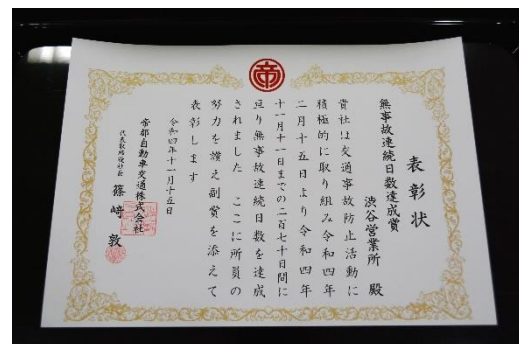 帝
表彰状
無事故連続日数達成賞
渋谷営業所 殿
貴社は交通事故防止活動に
積極的に取り組み令和四年
二月十五日より令和四年
十一月十一日までの二百七十日間に
亘り無事故連続日数を達成
されました ここに所員の
努力を讃え副賞を添えて
表彰します
令和四年十一月十五日
帝都自動車交通株式会社
代表取締役社長 篠﨑 敦